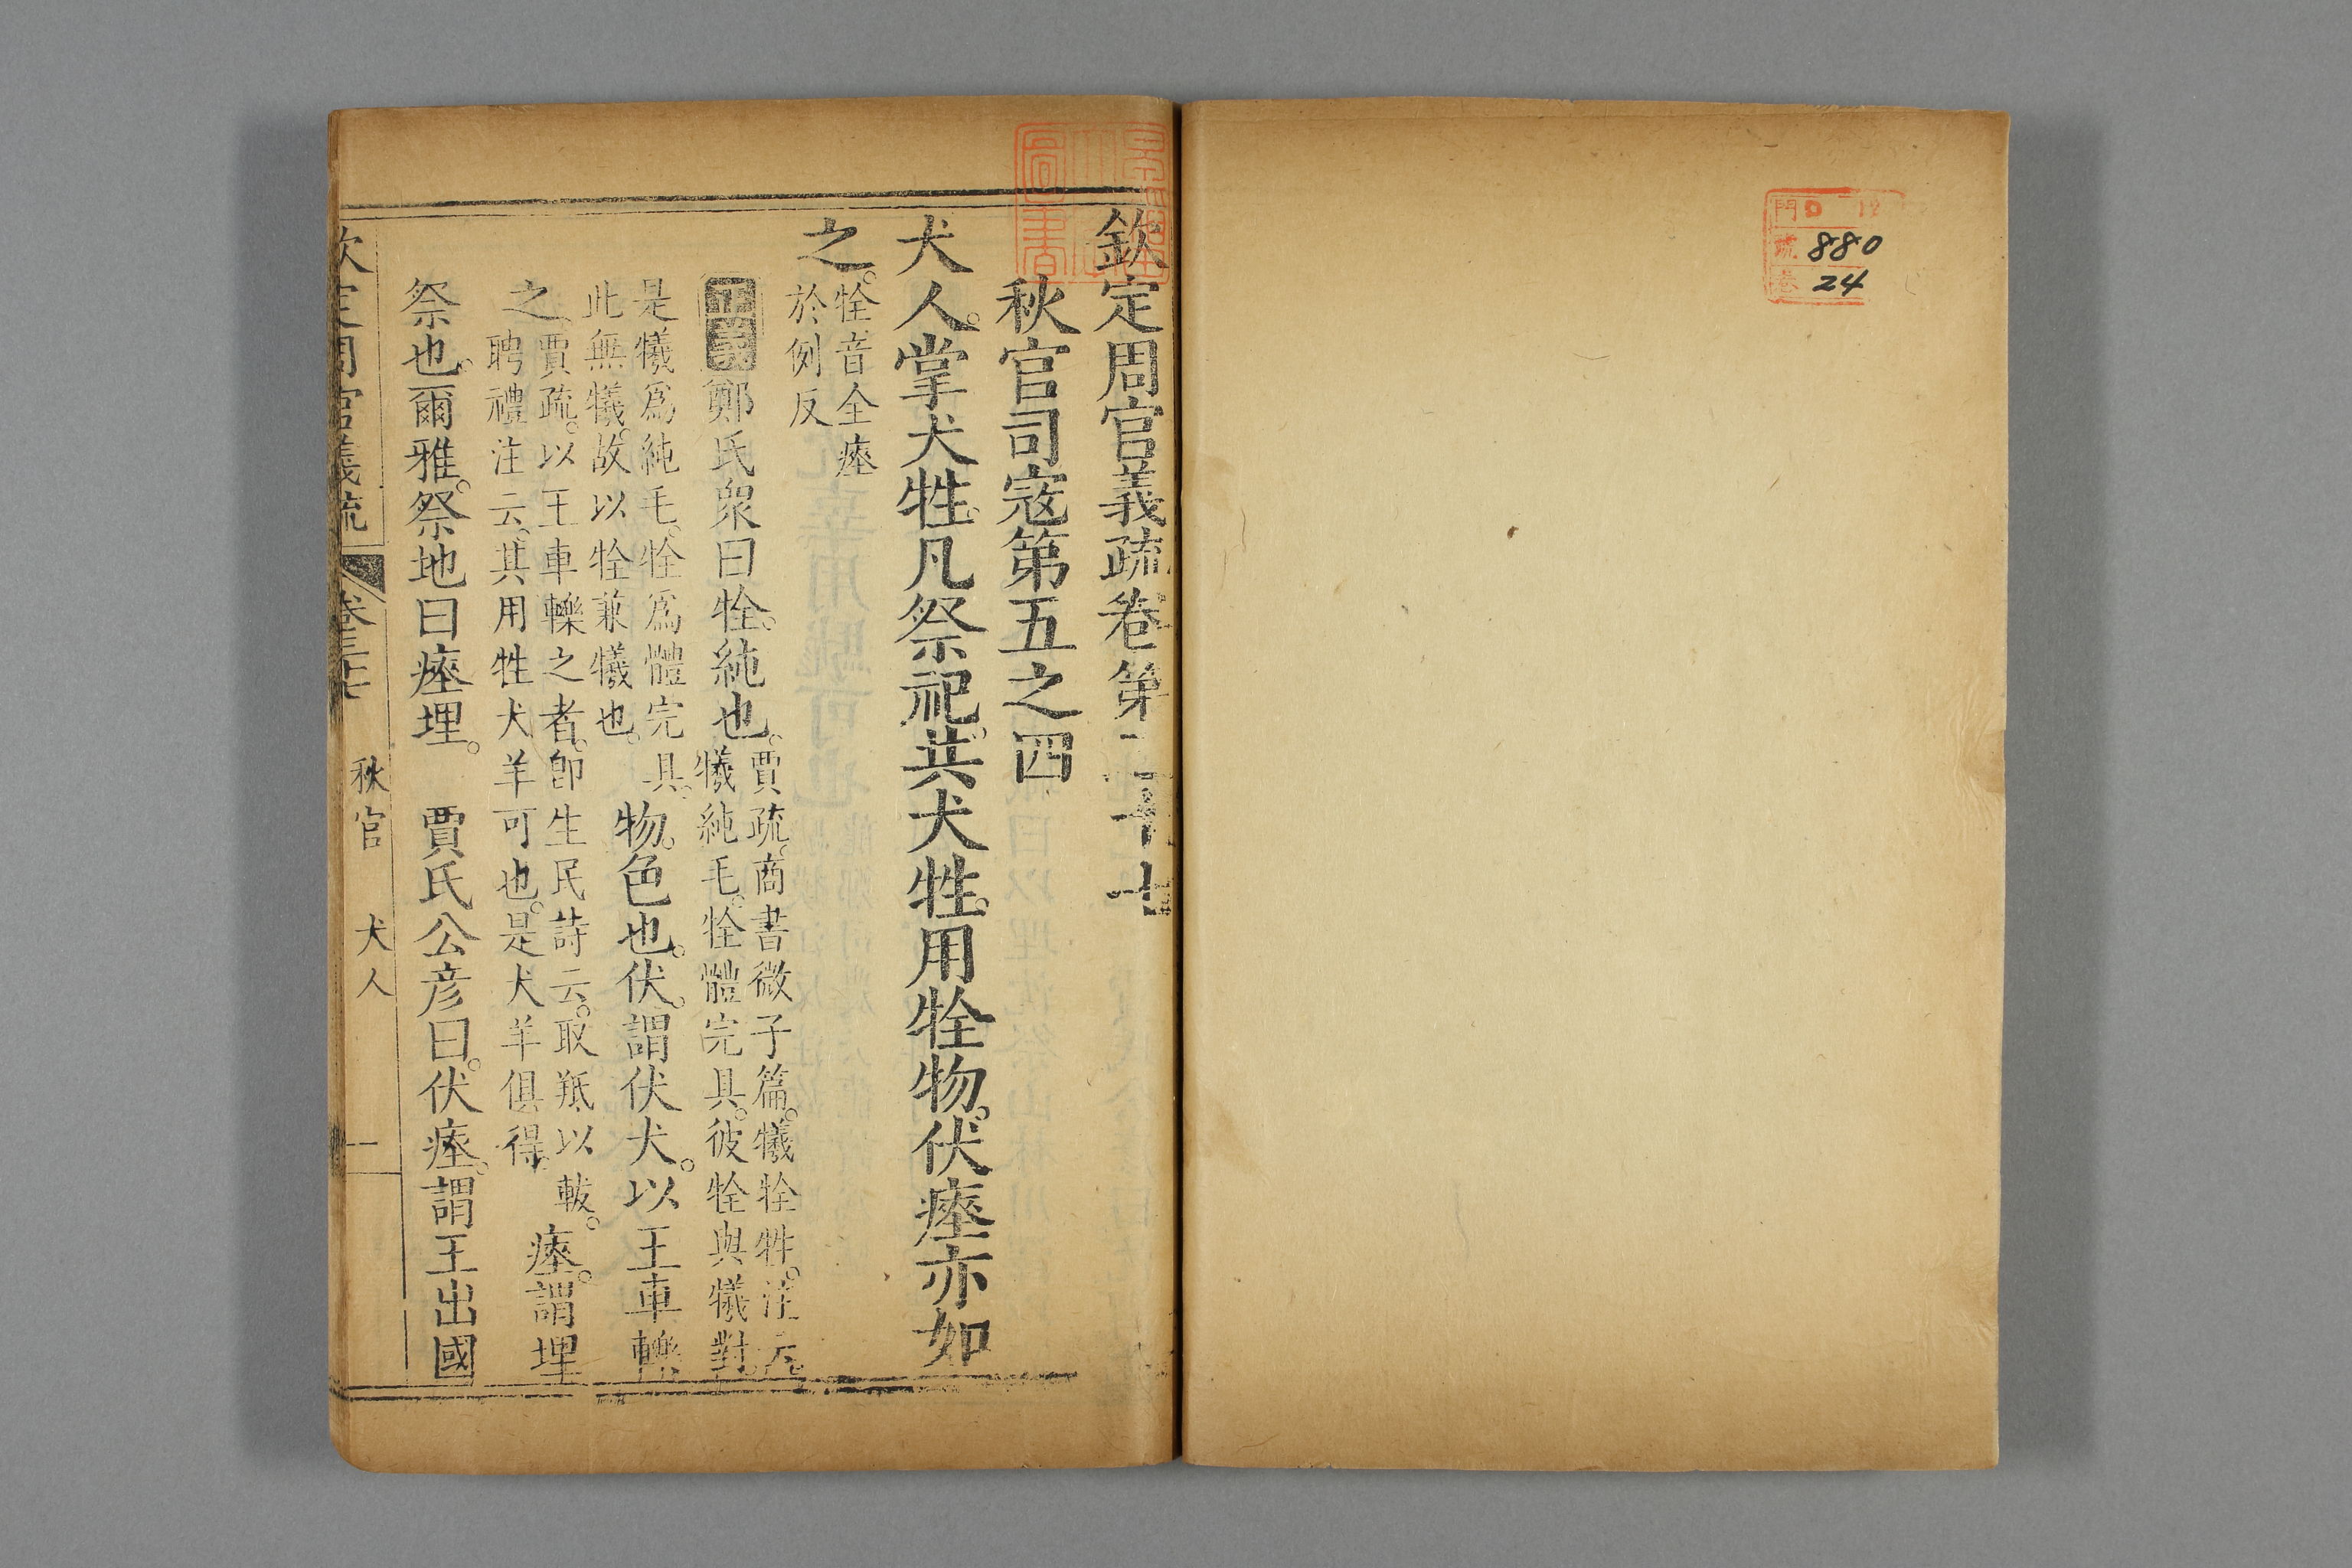 門 D
號 880
卷 24
欽定周官義疏卷第三十七
秋官司寇第五之四
犬人。掌犬牲。凡祭祀。共犬牲。用牷物。伏瘞亦如
之。牷音全瘞
於例反
正義鄭氏衆曰牷。純也。賈疏。商書微子篇。犧牷牲。注云。
犧純毛。牷體完具。彼牷與犧對
是犧爲純毛。牷爲體完具。
此無犧。故以牷兼犧也。物。色也。伏。謂伏犬。以王車轢
之。賈疏。以王車轢之者。卽生民詩云。取羝以軷。
聘禮注云。其用牲犬羊可也。是犬羊俱得。瘞。謂埋
祭也。爾雅。祭地曰瘞埋。 賈氏公彦曰。伏瘞。謂王出國
欽定周官義疏 卷三十七 秋官 犬人 一